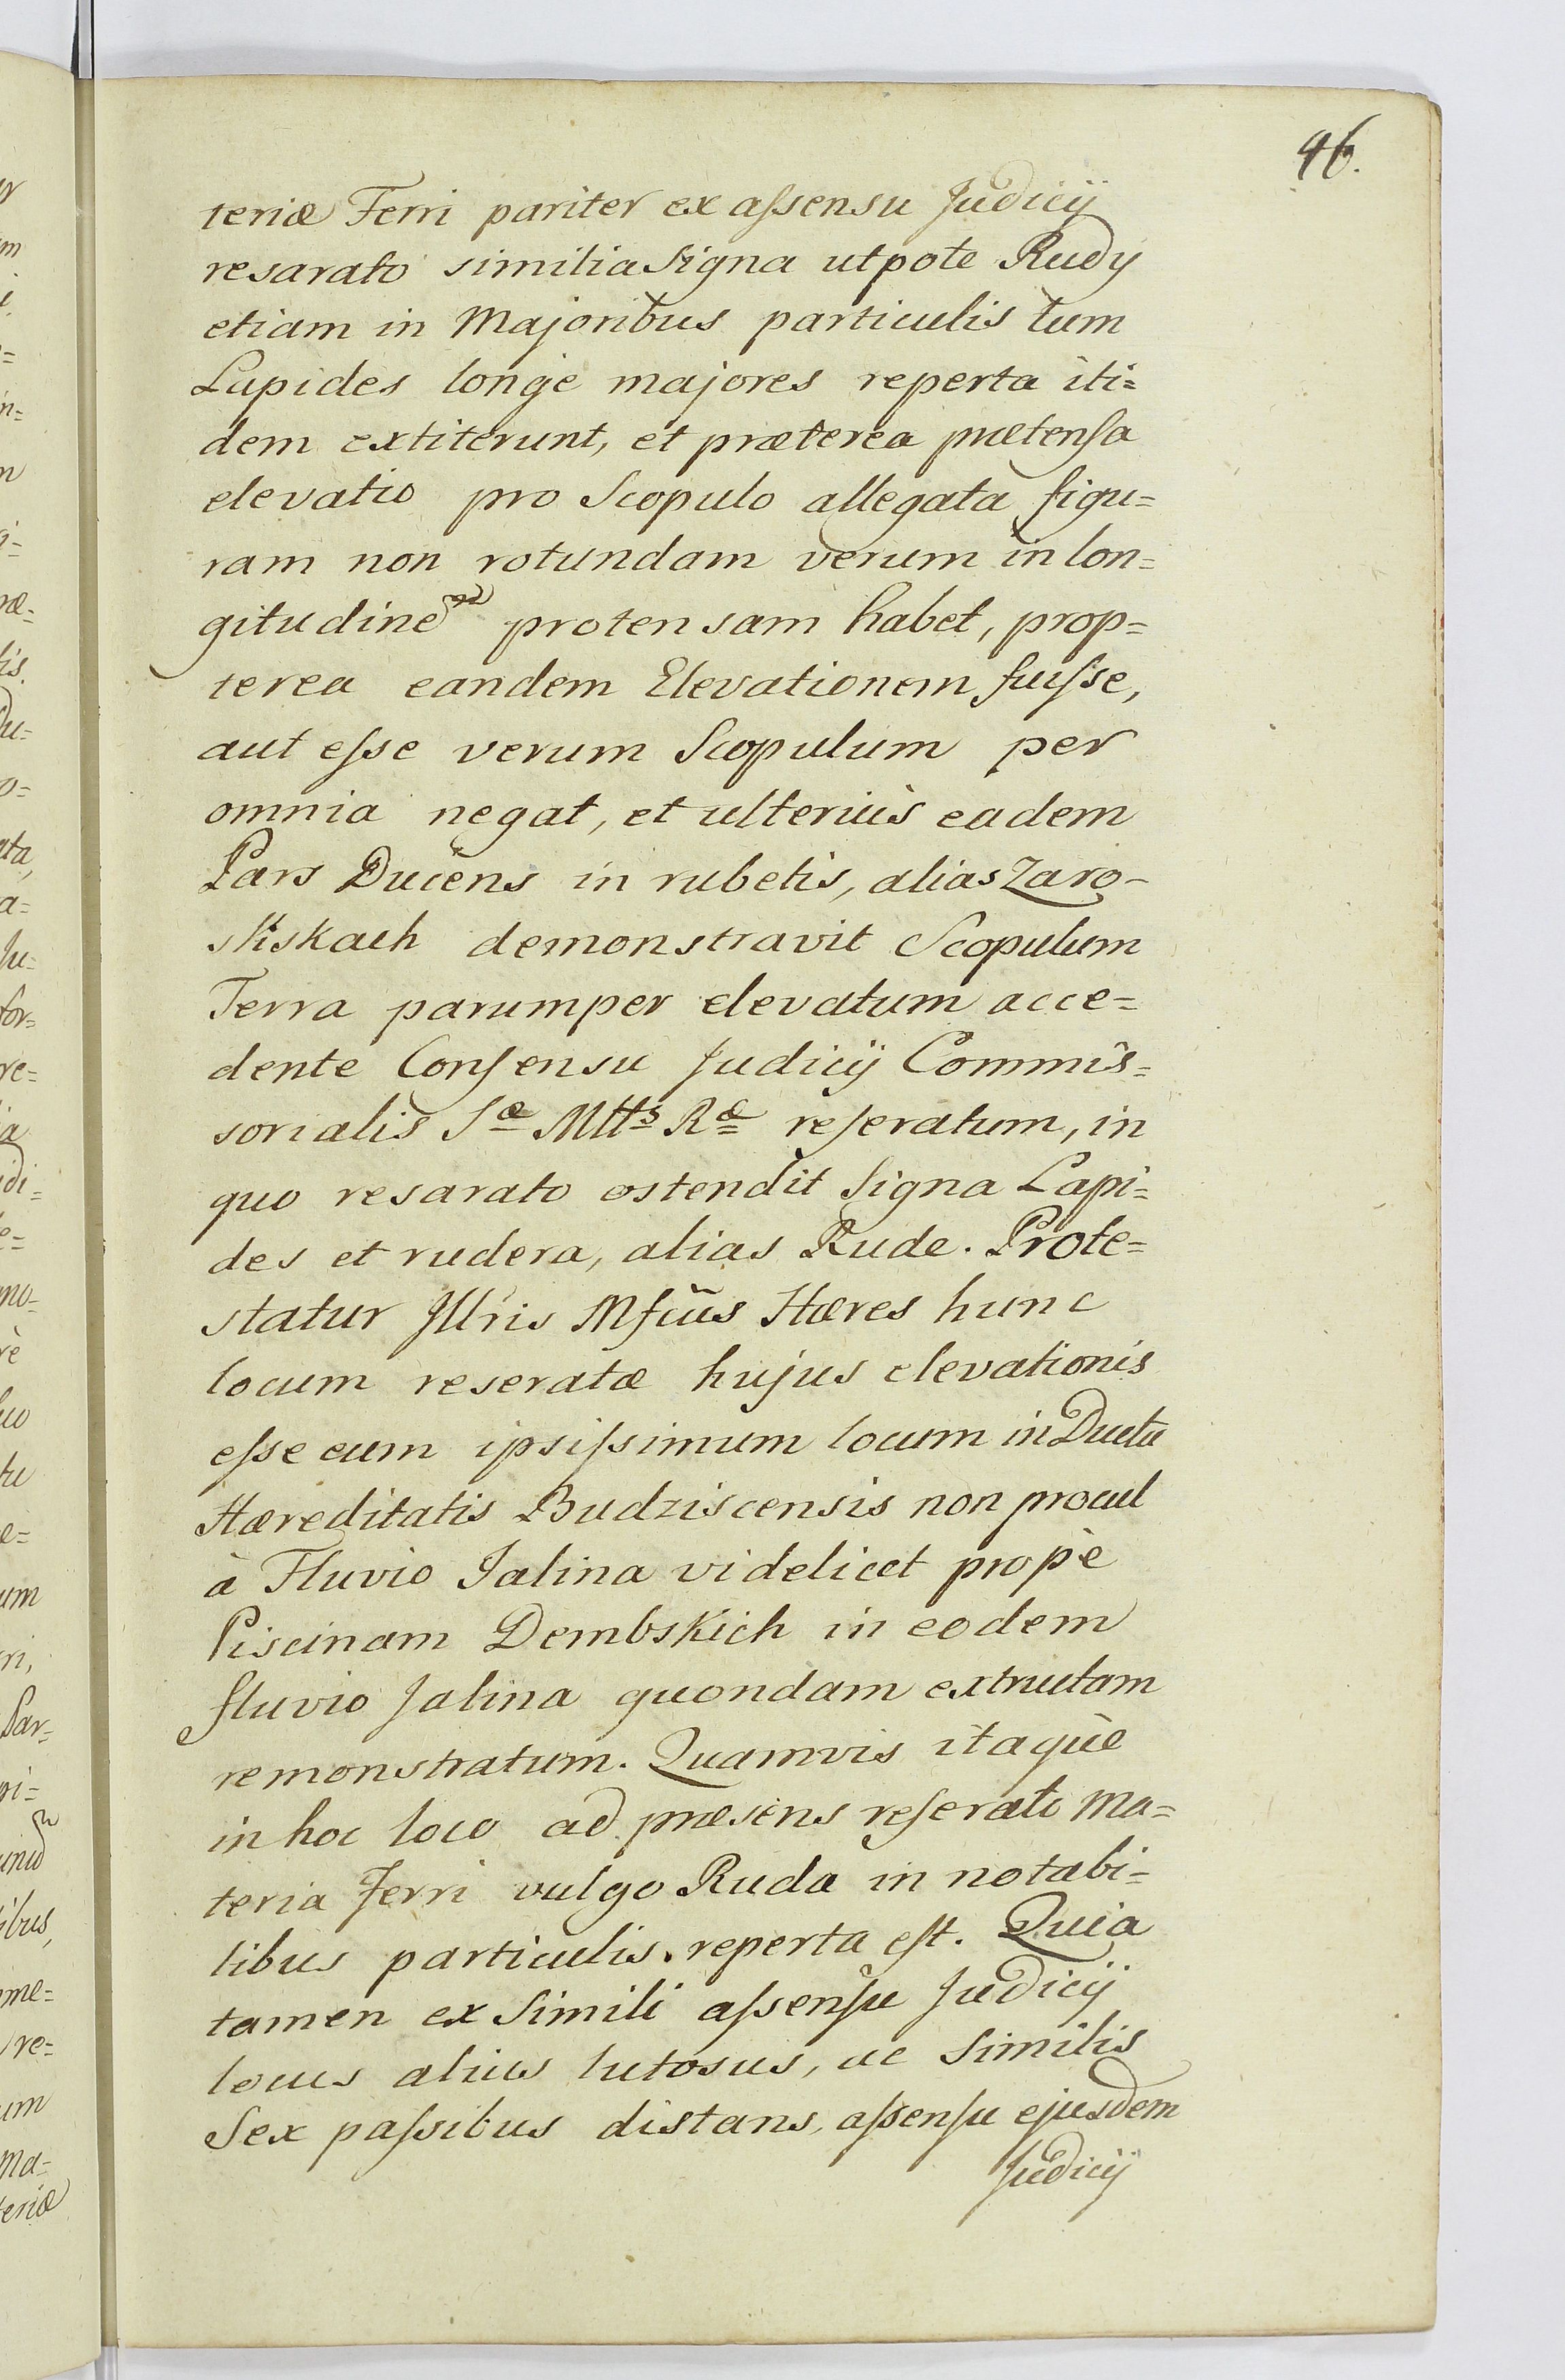 46.
teriæ Ferri pariter ex aſsensu Judicij
resarato similia Signa utpote Rudy
etiam in Majoribus particulis tum
Lapides longè majores reperta iti=
dem extiterunt, et præterea prætenſa
elevatio pro Scopulo allegata figu=
ram non rotundam verum in lon=
gitudinem protensam habet, prop=
terea eandem Elevationem fuiſse,
aut eſse verum Scopulum per
omnia negat, et ulteriùs eadem
Pars Ducens in rubetis, alias Zaro-
sliskach demonstravit Scopulum
Terra parumper elevatum acce=
dente Conſensu Judicij Commis=
sorialis Sæ Mttis Ræ reſeratum, in
quo resarato ostendit Signa Lapi=
des et rudera, alias Rude. Prote=
statur Jllris Mfcus Hæres hunc
locum reseratæ hujus elevationis
eſse eum ipsiſsimum locum in Ductu
Hæreditatis Budziscensis non procul
à Fluvio Jalina videlicet propè
Piscinam Dembskich in eodem
fluvio Jalina quondam extructam
remonstratum. Quamvis itaquè
in hoc loco ad præsens reſerato Ma=
teria Ferri vulgo Ruda in notabi=
libus particulis reperta eſt. Quia
tamen ex Simili aſsenſu Judicij
locus alius lutosus, ac Similis
Sex paſsibus distans, aſsenſu ejusdem
Judicij